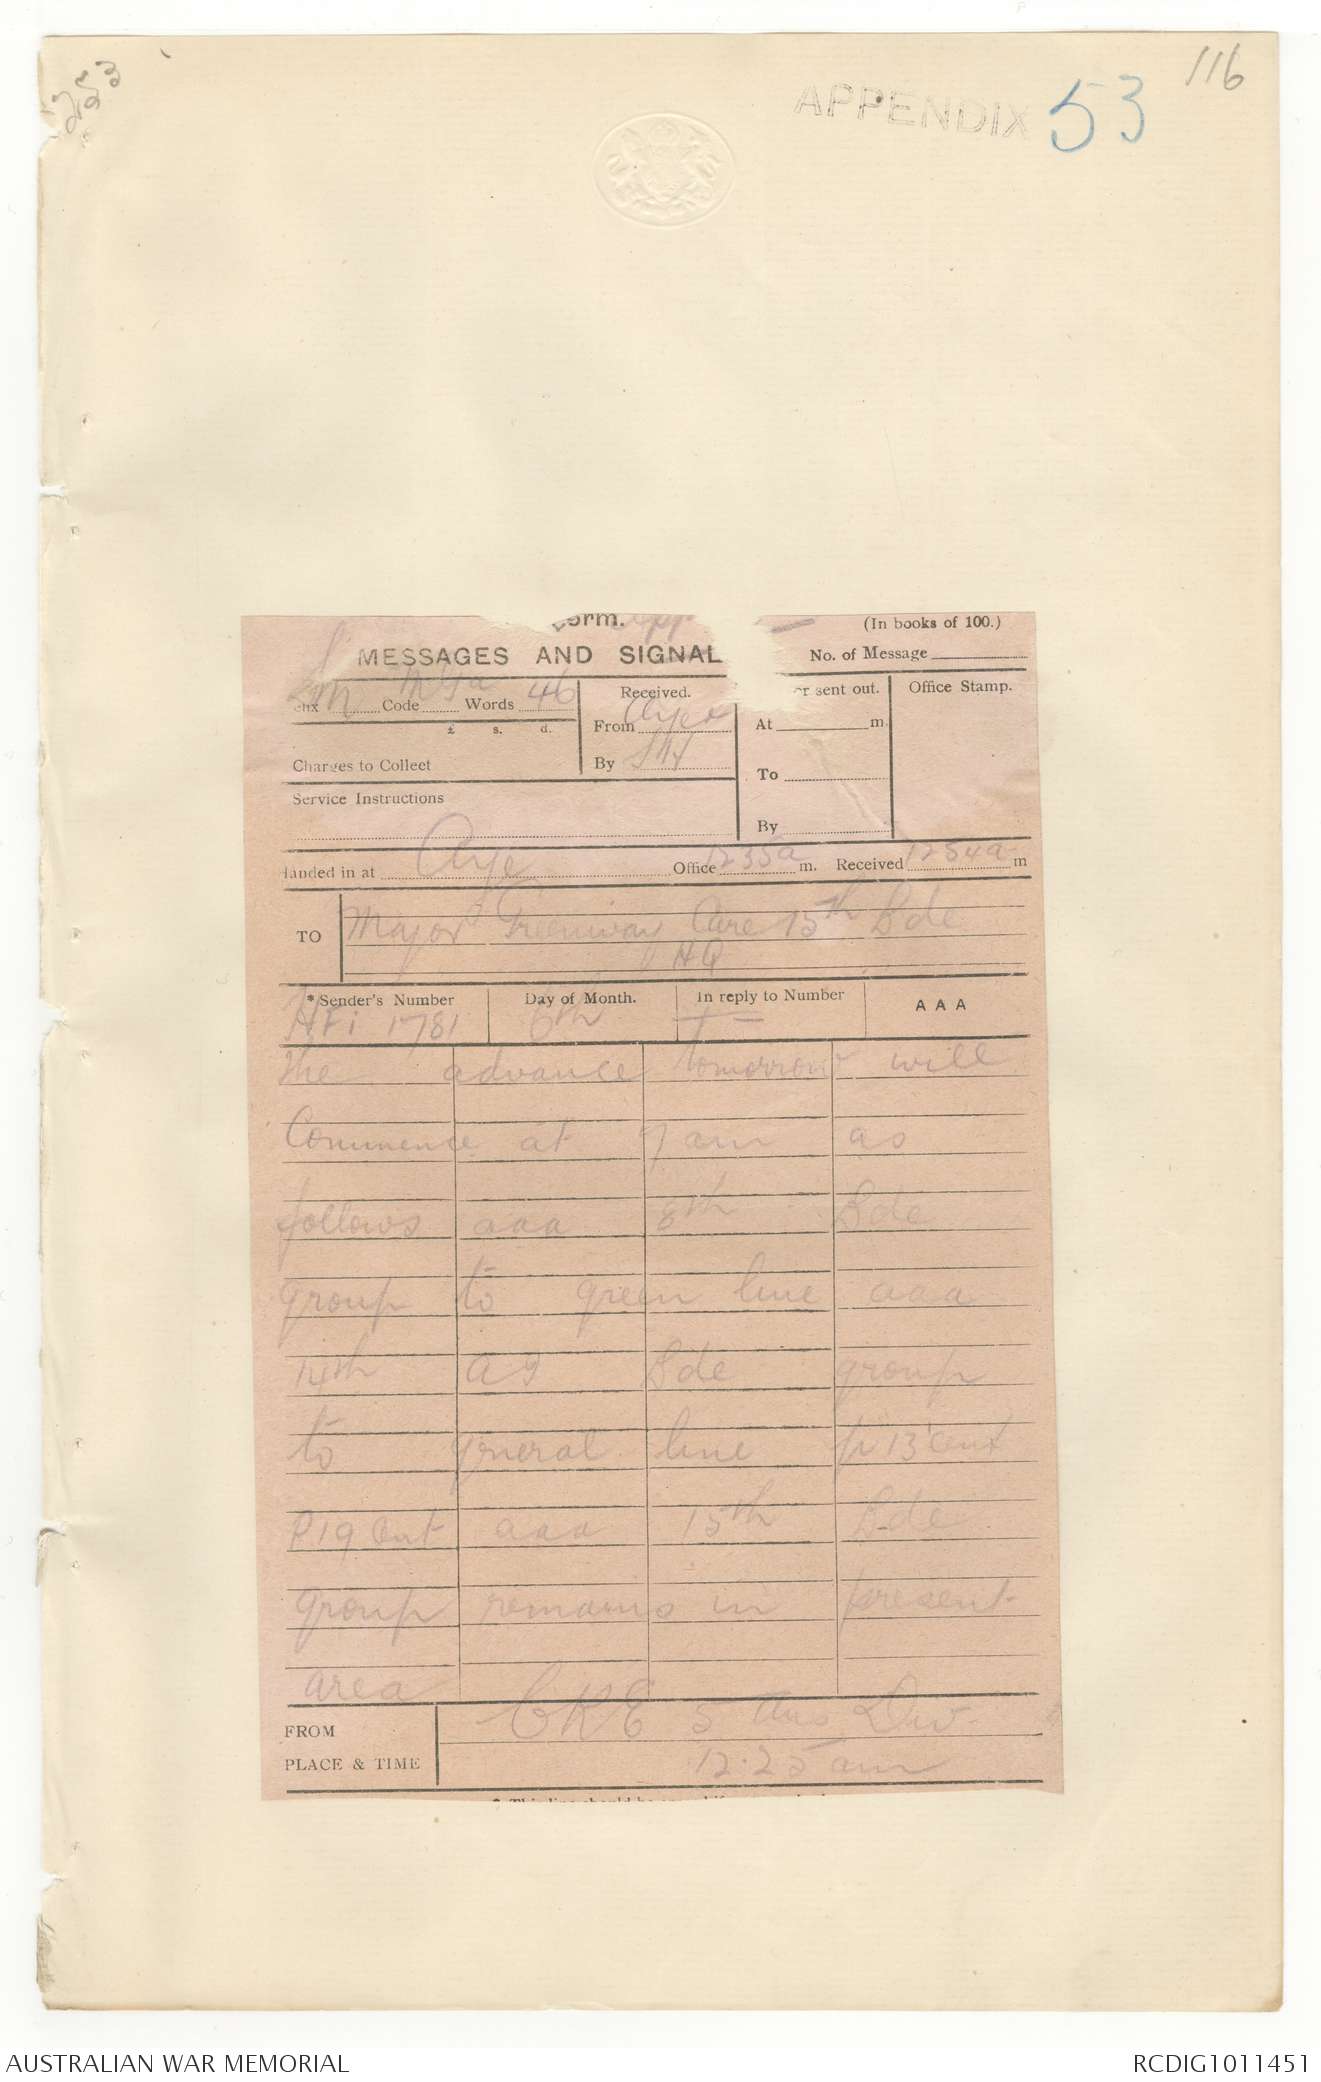 253
116
APPENDIX 53
orm.
(In books of 100.)
MESSAGES AND SIGNAL
No. of Message
Code Words 46
Received.
sent out.
Office Stamp.
£ s. d.
From
At m.
Charges to Collect
By
To
Service Instructions
By
Handed in at Aye Office 1235a m. Received 1254a m
TO Major Greenway Care 15th Bde
HQ
*Sender's Number Day of Month. In reply to Number AAA
1781 6th
The advance tomorrow will
Commence at 7 am as
follows aaa 8th Bde
group to green line aaa
14th Bde group
to general line
P19 Cent aaa 15th Bde
group remains in present
area
FROM
PLACE & TIME
CRE 5 Aus Div.
12.25 am
AUSTRALIAN WAR MEMORIAL
RCDIG1011451